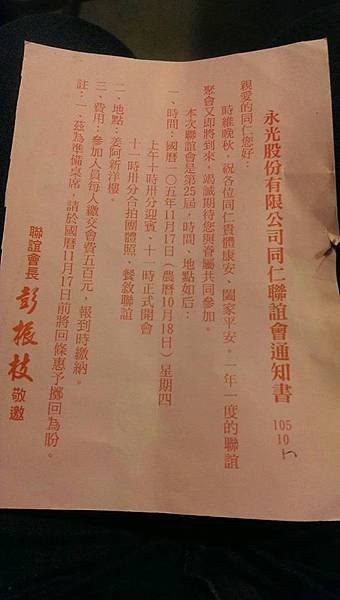 永光股份有限公司同仁聯誼會通知書
105
10
親愛的同仁您好:
時維晚秋,祝各位同仁貴體康安、闔家平安。一年一度的聯誼
聚會又即將到來,竭誠期待您與眷屬共同參加。
本次聯誼會是第25屆,時間、地點如后:
一、時間:國曆一○五年11月17日(農曆10月18日)星期四
上午十時卅分迎賓、十一時正式開會
十一時卅分合拍團體照、餐敘聯誼
二、地點:姜阿新洋樓。
三、費用:參加人員每人繳交會費五百元,報到時繳納。
註:一、茲為準備桌席,請於國曆11月17日前將回條惠予擲回為盼。
聯誼會長 彭振枝 敬邀